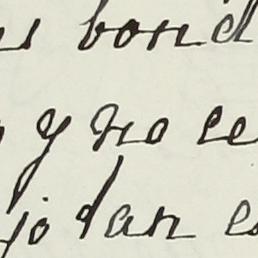 bond
y no ce
jo dan e